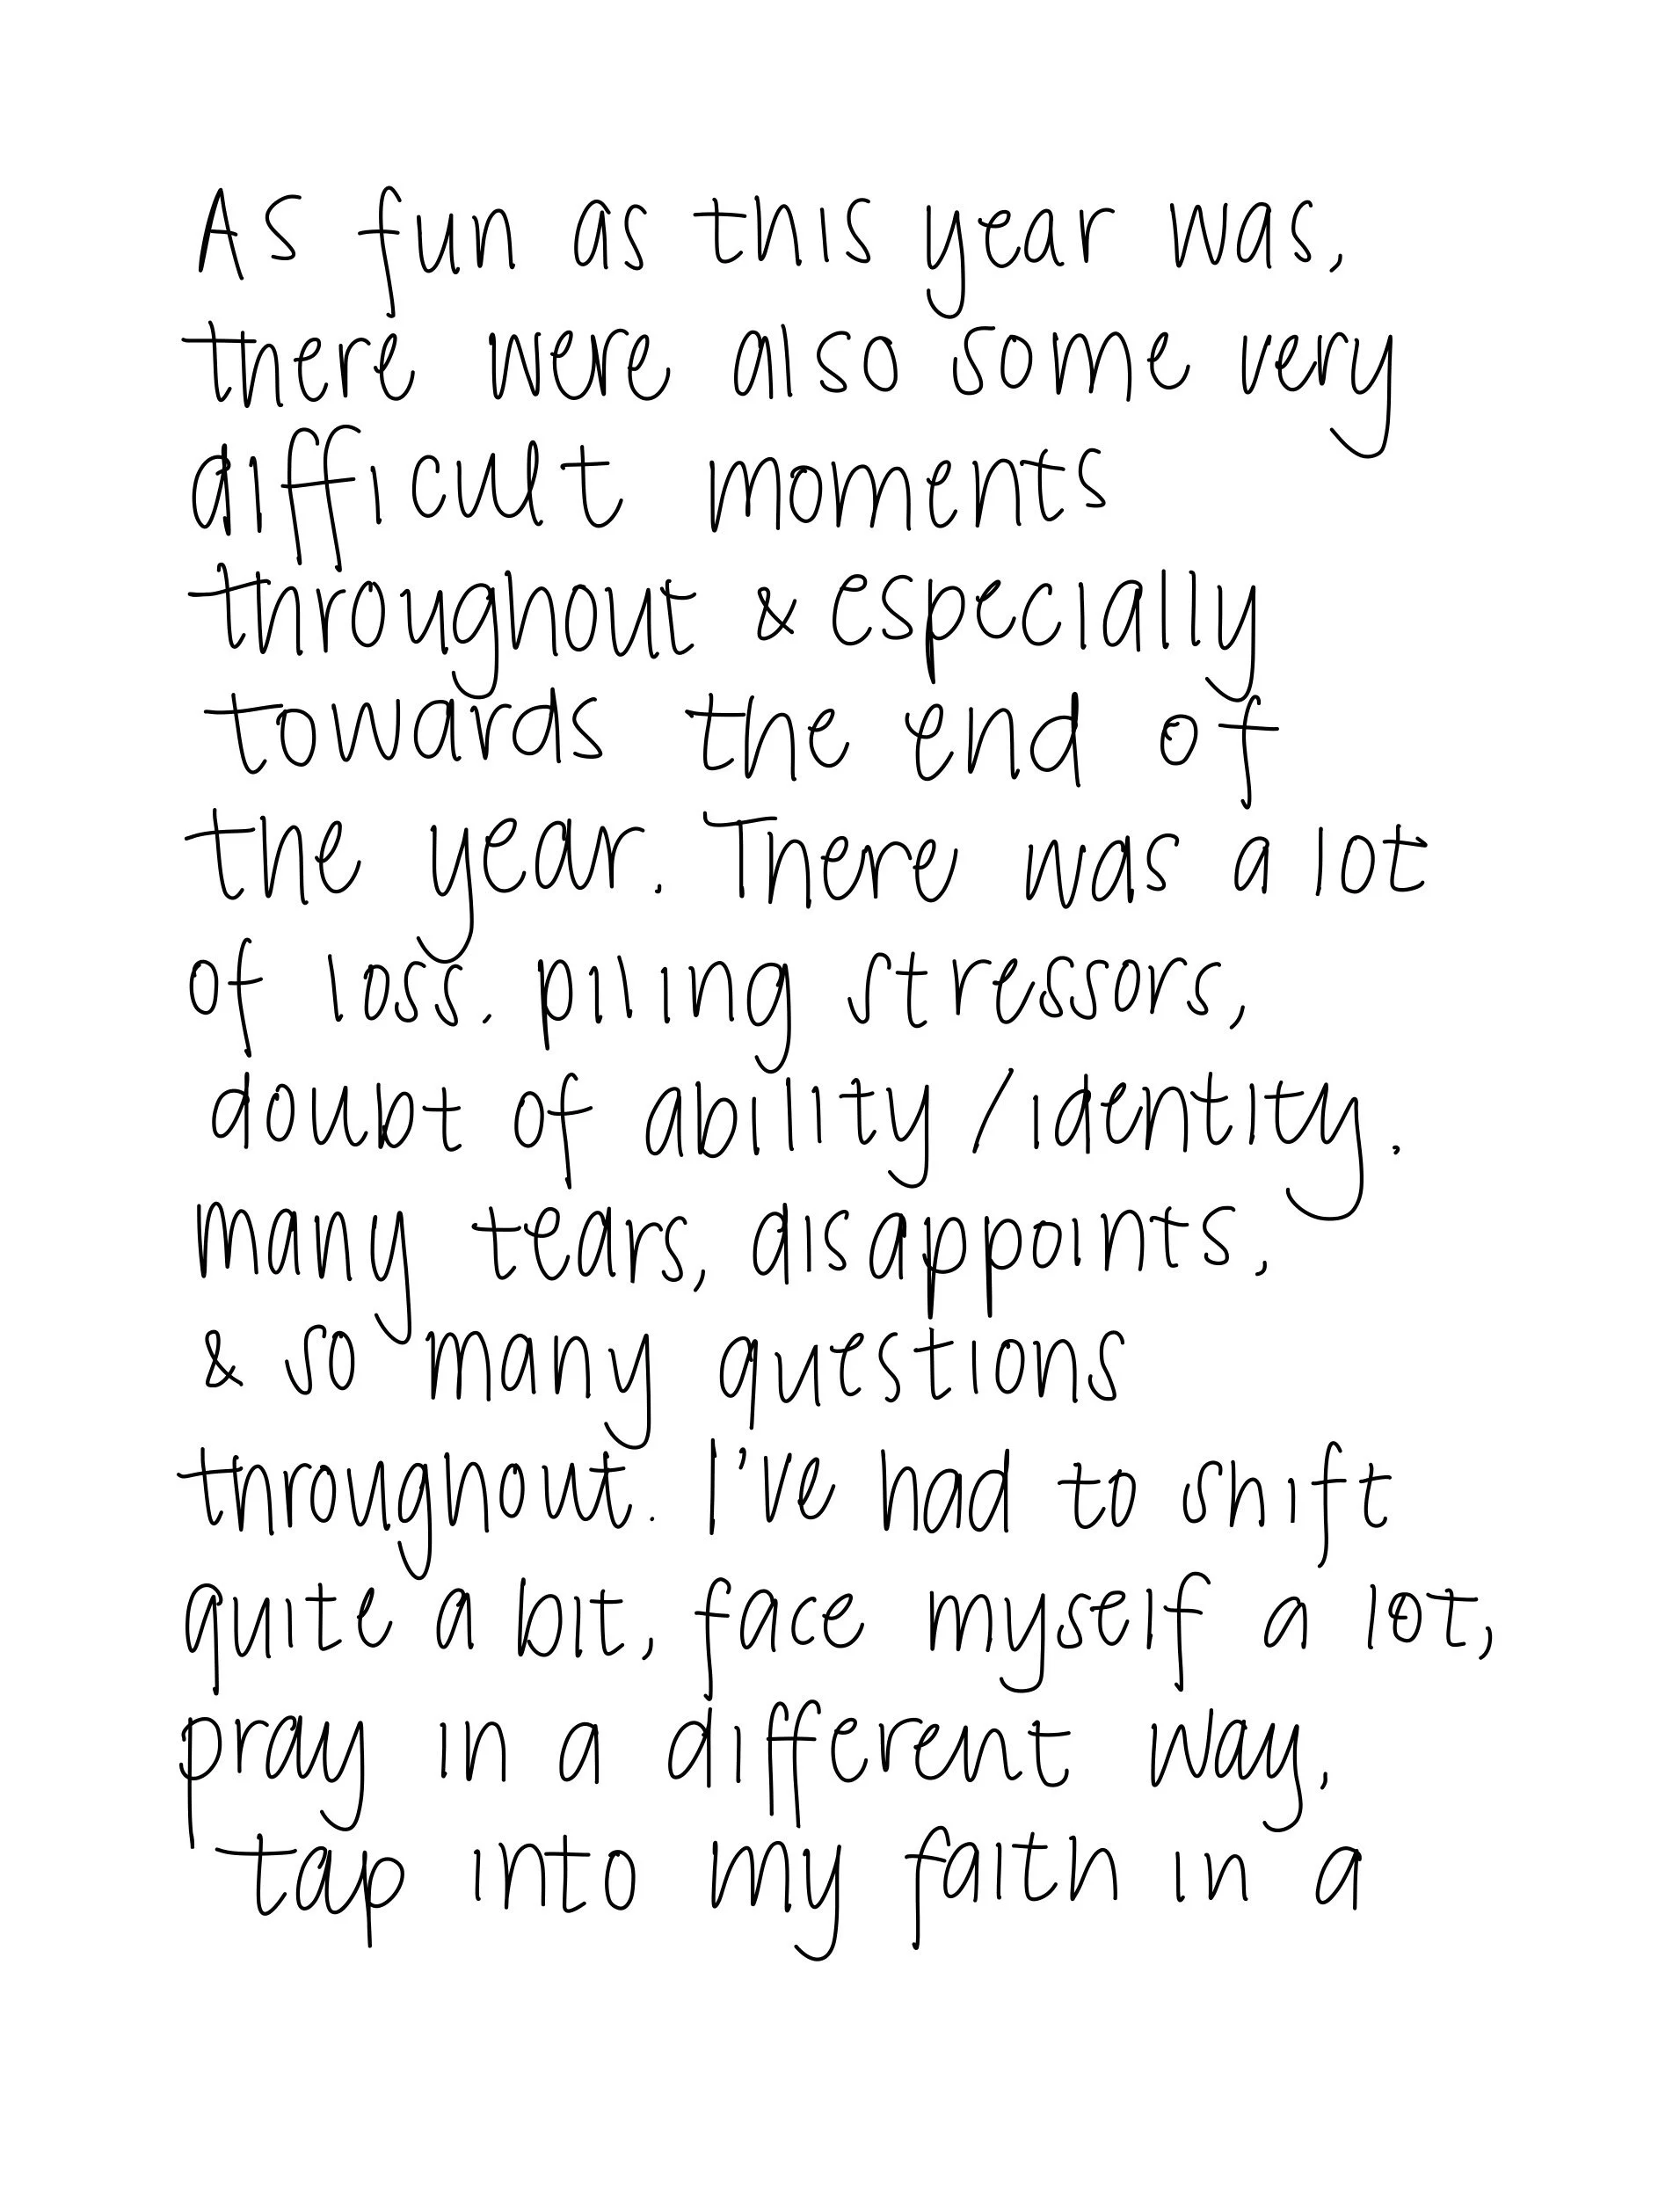 As fun as this year was,
there were also some very
difficult moments
throughout & especially
towards the end of
the year. There was a lot
of loss, piling stressors,
doubt of ability/identity.
many tears, disappoints,
& so many questions
throughout. I've had to shift
quite a bit, face myself a lot,
pray in a different way,
tap into my faith in a